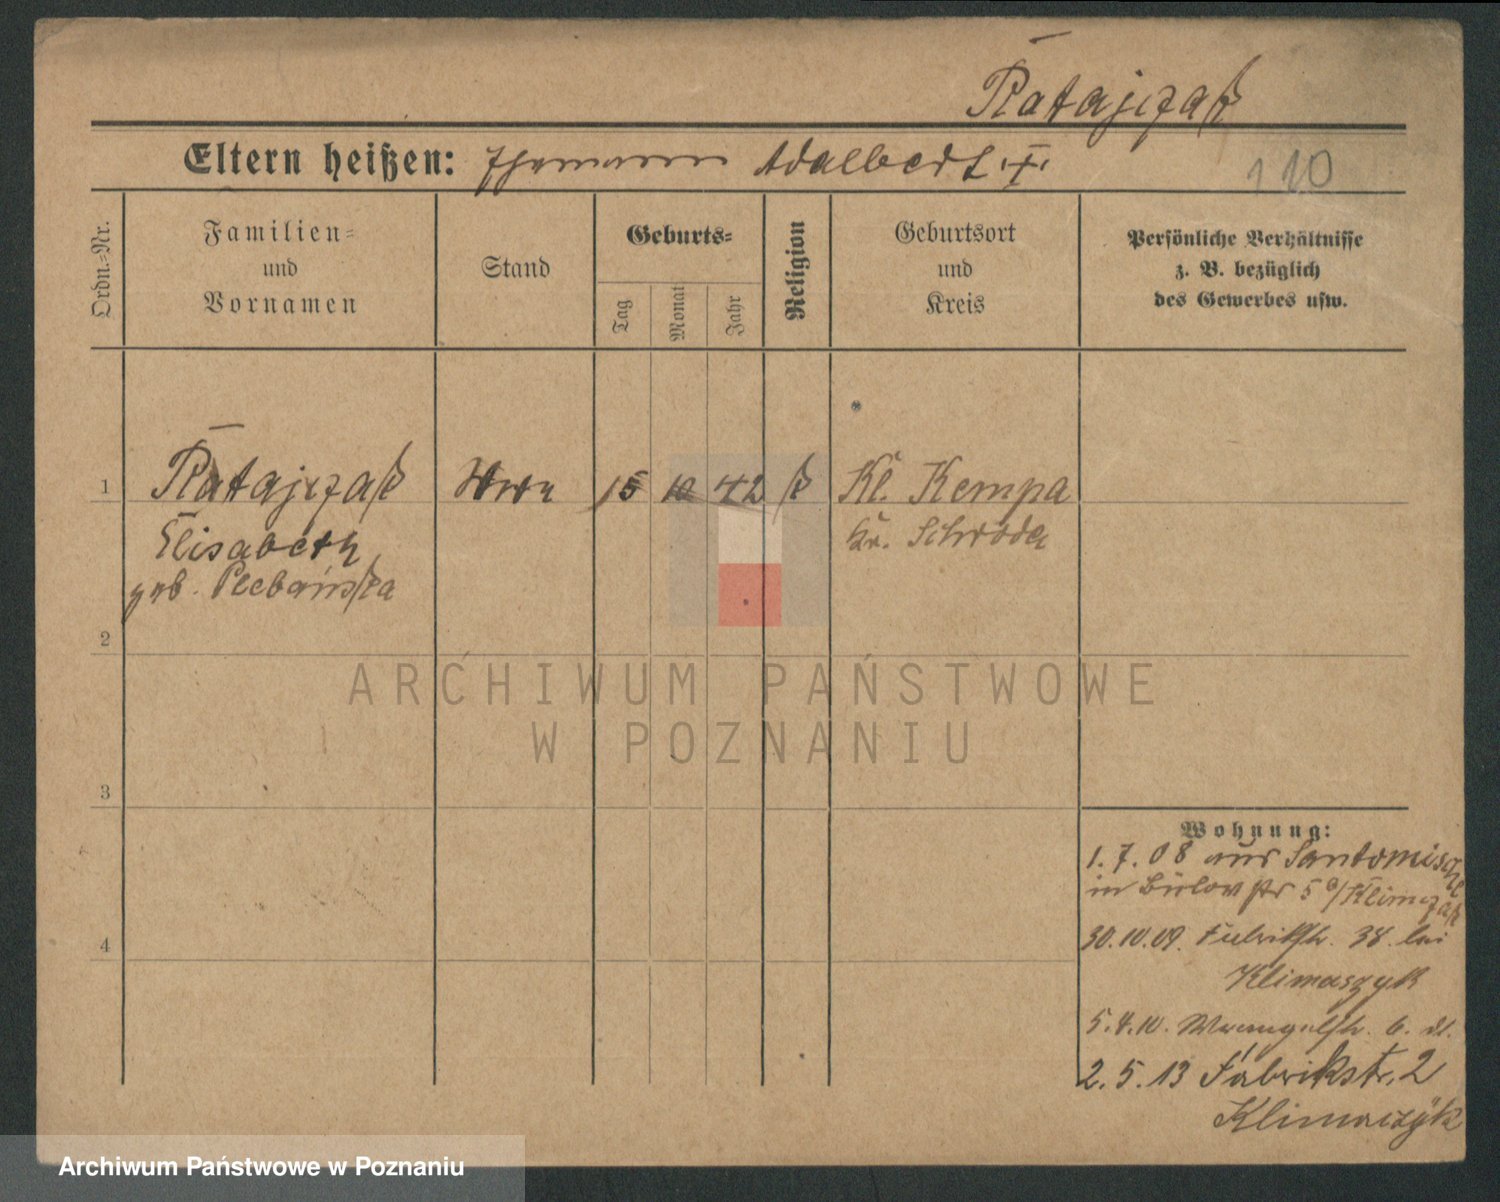 Ratajczak
Eltern heißen: Ehemann Adalbert †
110
Ordn.-Nr.
Familien-
und
Vornamen
Stand
Geburts-
Tag
Monat
Jahr
Religion
Geburtsort
und
Kreis
Persönliche Verhältnisse
z. B. bezüglich
des Gewerbes usw.
1 Ratajczak Wwe 15 10 42 k Kl. Kempa
Elisabeth Kr. Schroda
geb. Plebańska
2
3
4
Wohnung:
1.7.08 aus Santomischel
in Bülowstr 5 a/Klimczak
30.10.09. Fabrikstr. 38. bei
Klimaszyk
5.4.10. Wrangelstr. 6. dl.
2.5.13 Fabrikstr. 2
Klimaczyk
ARCHIWUM PAŃSTWOWE
W POZNANIU
Archiwum Państwowe w Poznaniu